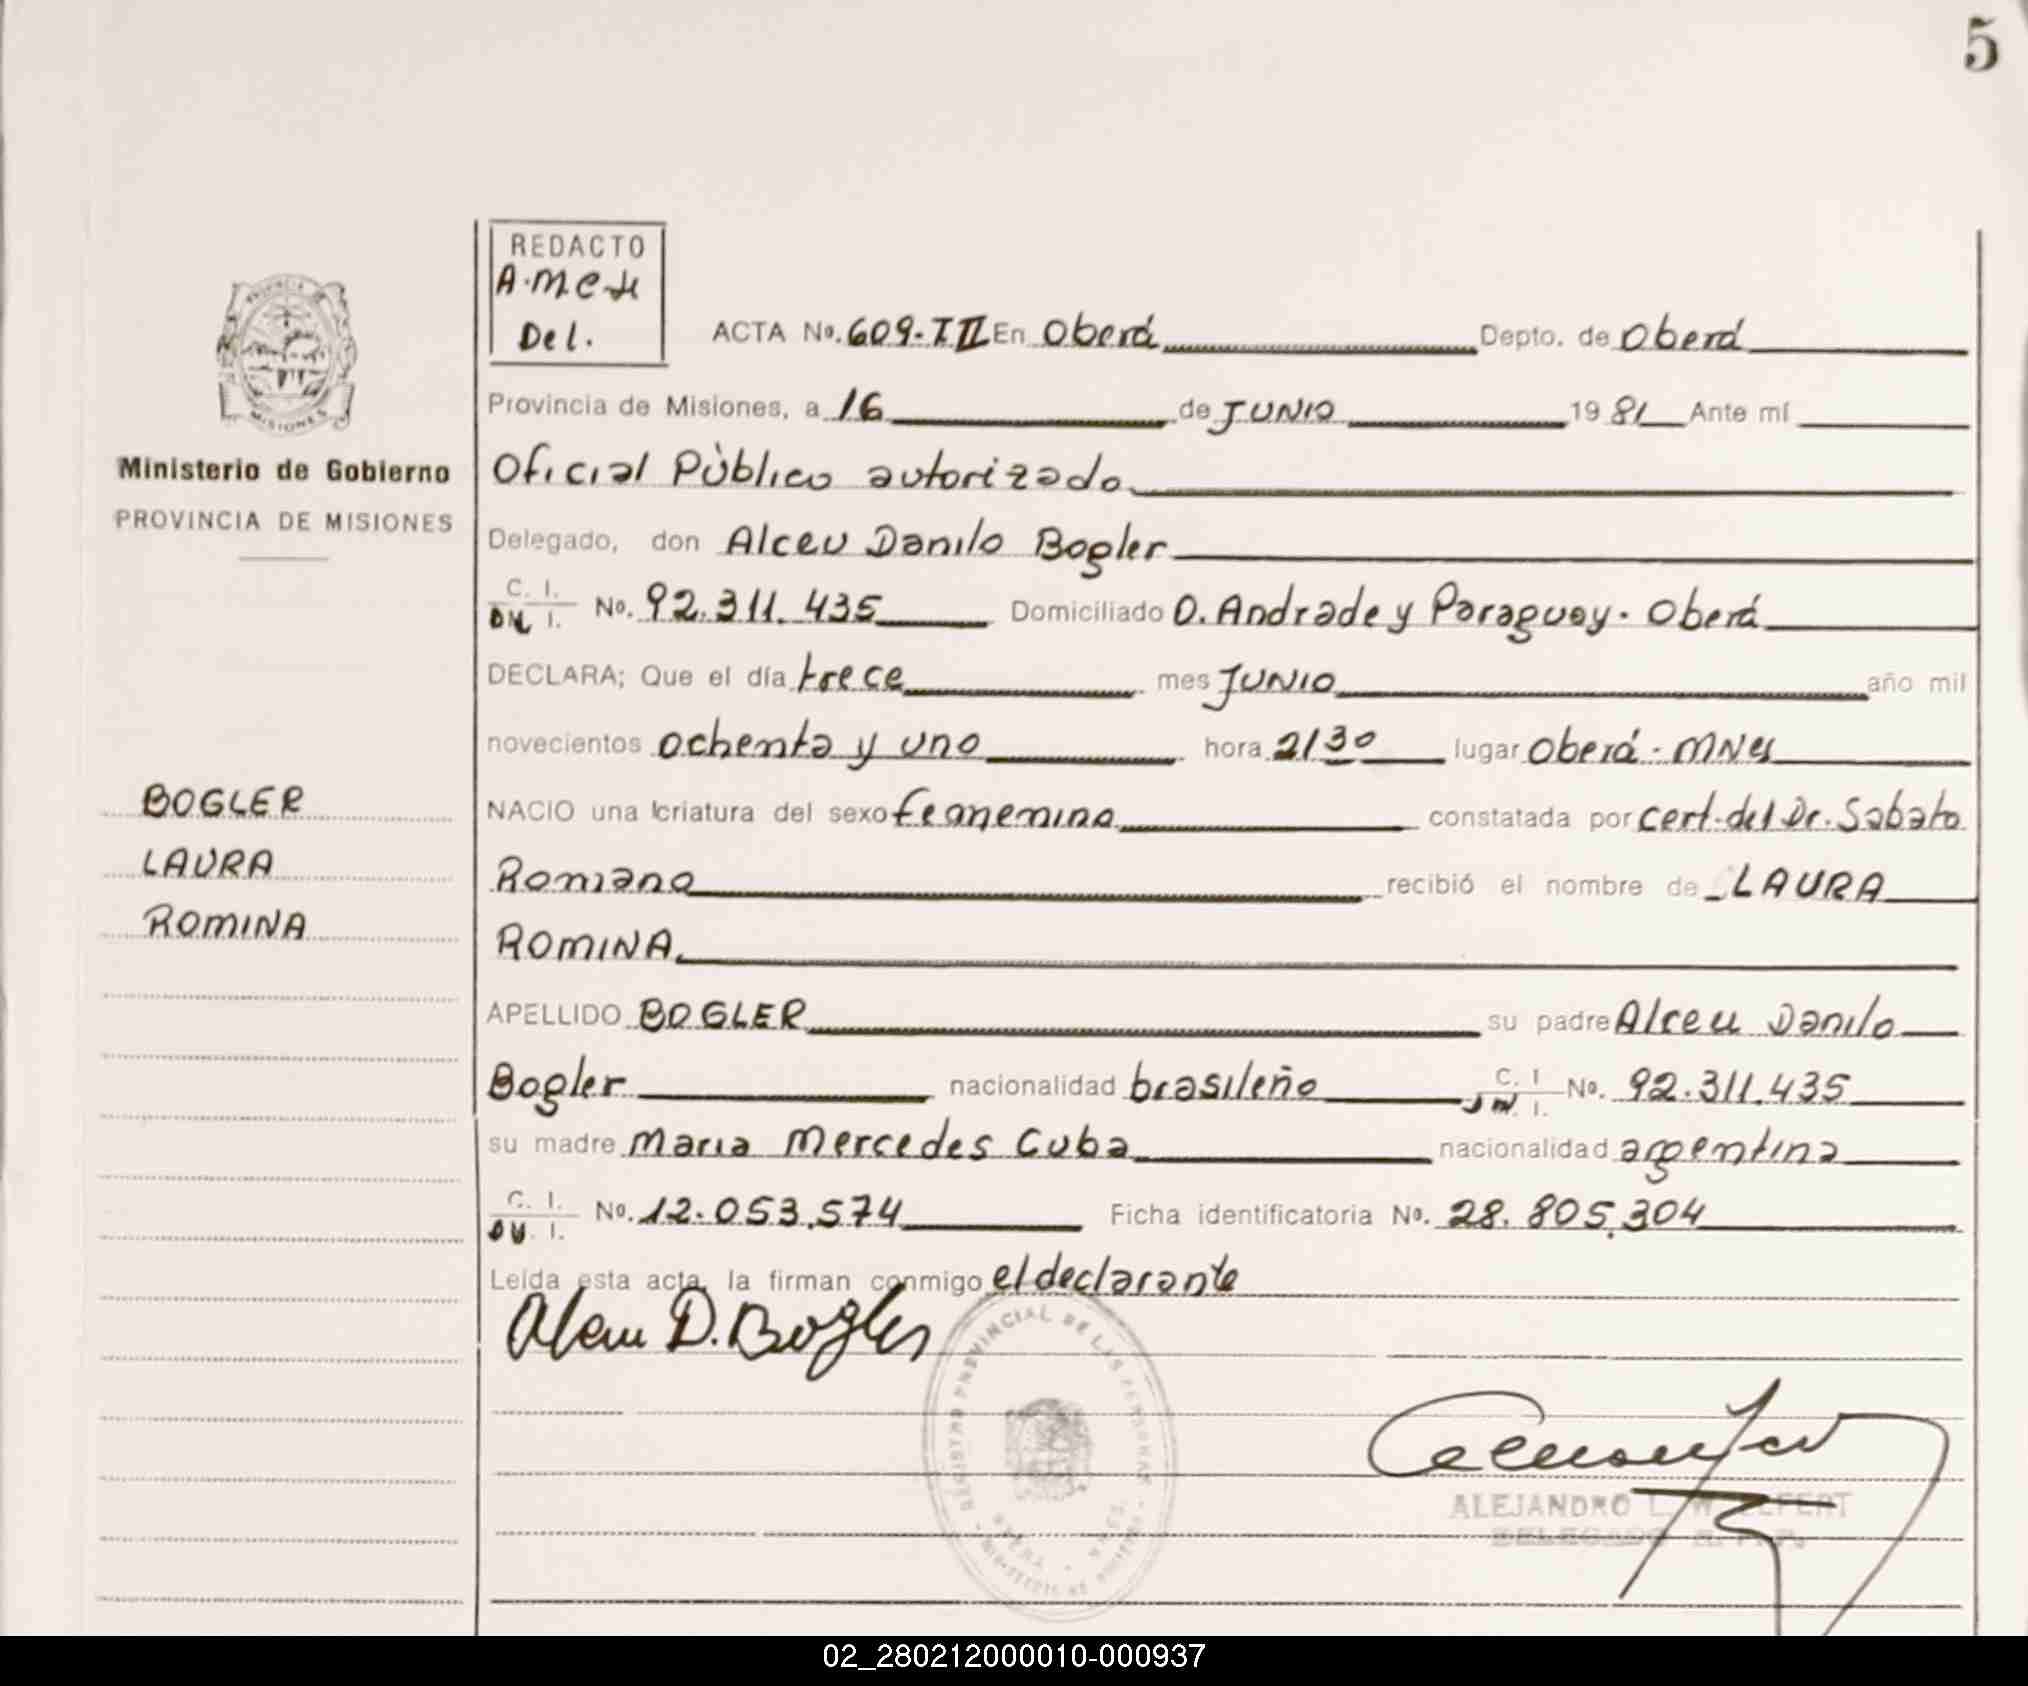 5
REDACTO
A.M.C.H
Del.
ACTA No. 609-T II En Oberá Depto. de Oberá
Provincia de Misiones, a 16 de JUNIO 19 81 Ante mí
Oficial Público autorizado
Delegado, don Alceu Danilo Bogler
C. I.
DN I. No. 92.311.435 Domiciliado O. Andrade y Paraguay. Oberá
DECLARA; Que el día trece mes JUNIO año mil
novecientos ochenta y uno hora 21 30 lugar Oberá - MNes
NACIO una criatura del sexo femenino constatada por cert. del Dr. Sabato
Romano recibió el nombre de LAURA
ROMINA.
APELLIDO BOGLER su padre Alceu Danilo
Bogler nacionalidad brasileño C. I No. 92.311.435
su madre Maria Mercedes Cuba nacionalidad argentina
C. I. No. 12.053.574 Ficha identificatoria No. 28.805.304
Leída esta acta, la firman conmigo el declarante
Alceu D. Bogler
MISIONES
Ministerio de Gobierno
PROVINCIA DE MISIONES
BOGLER
LAURA
ROMINA
REGISTRO PROVINCIAL DE LAS PERSONAS
ALEJANDRO L.
DELEGADO
02_280212000010-000937